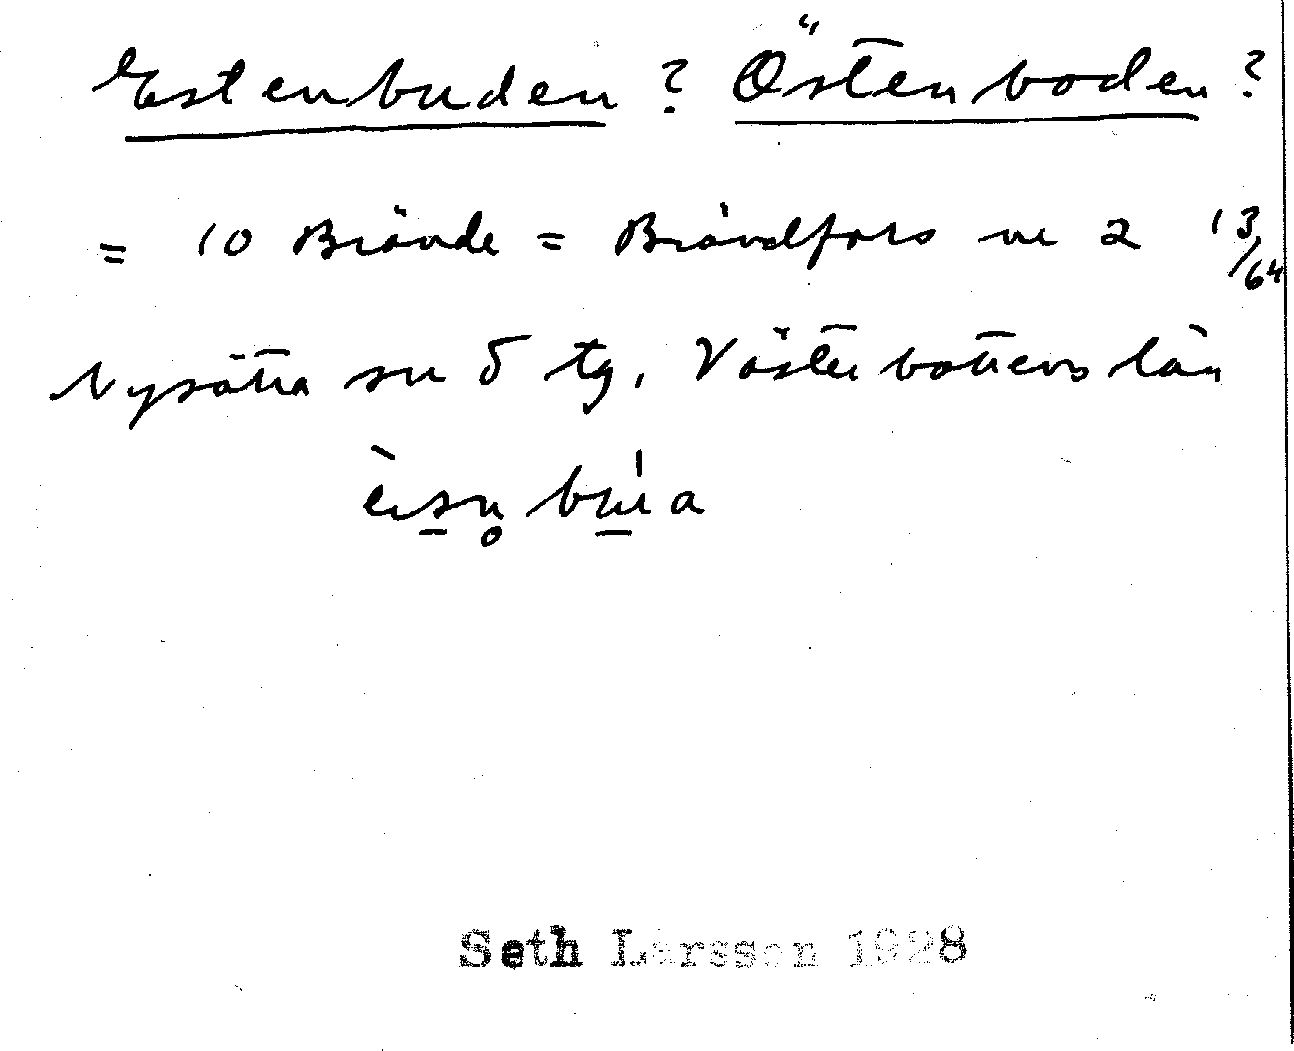 Estenbuden? Östenboden?
= 10 Brände = Brändfors nr 2 13/64
Nysätra sn 5 tg, Västerbottens län
Seth Larsson 1928